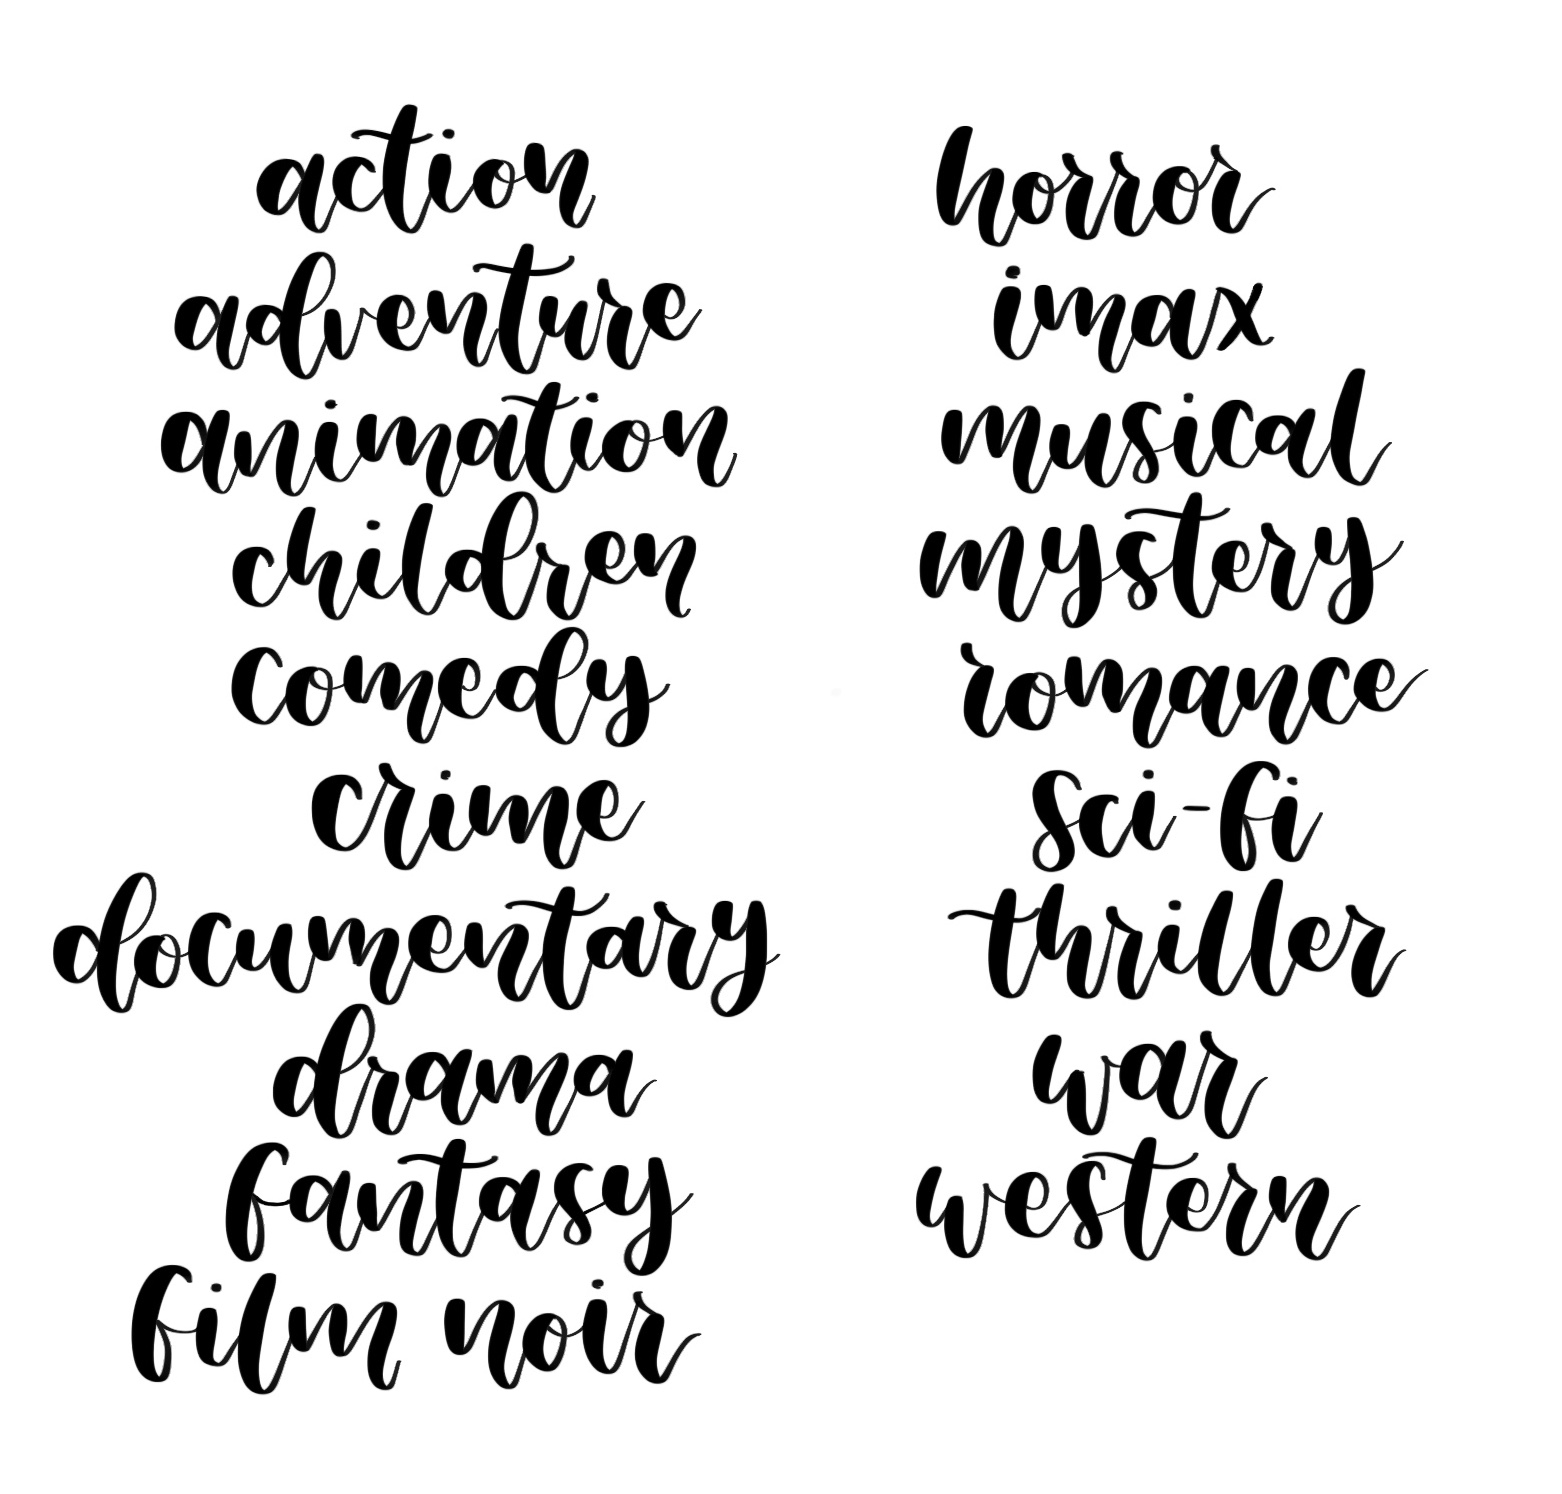 action
adventure
animation
children
comedy
crime
documentary
drama
fantasy
film noir
horror
imax
musical
mystery
romance
sci-fi
thriller
war
western